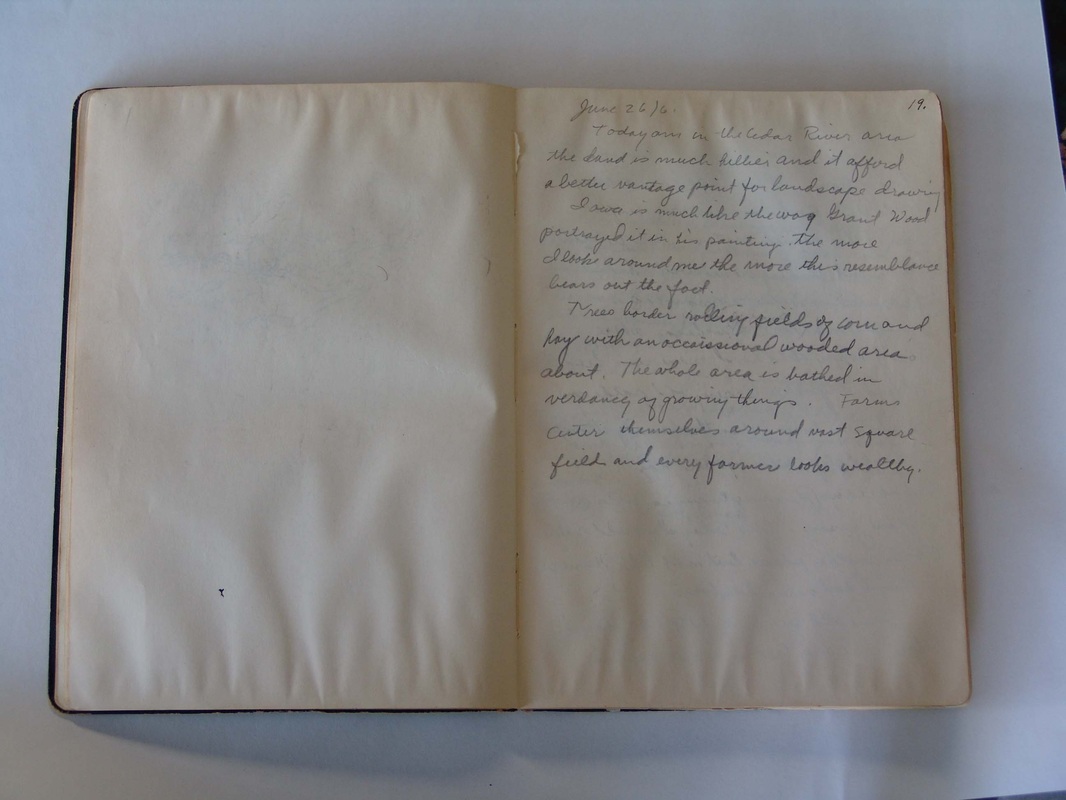 19.
June 26/6.
Today am in the Cedar River area
the land is much hillier and it afford
a better vantage point for landscape drawing
Iowa is much like the way Grant Wood
portrayed it in his painting. the more
I look around me the more this resemblance
bears out the fact.
Trees border rolling fields of corn and
hay with an occaissional wooded area
about. The whole area is bathed in
verdancy of growing things. Farms
themselves around vast square
field and every farmer looks wealthy.